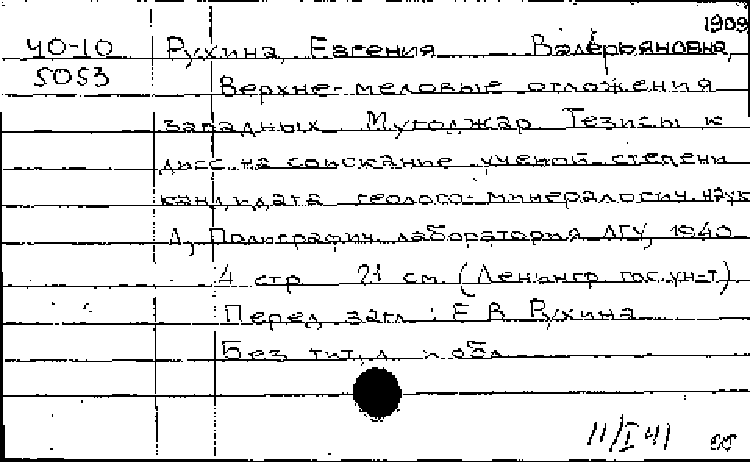 1909
40-10 Рухина, Евгения Валерьяновна,
5053 Верхне-меловые отложения
западных Мугоджар Тезисы к
дисс. на соискание ученой степени
кандидата геолого-минералогич. наук
Л., Полиграфич. лаборатория ЛГУ, 1940
4 стр 21 см. (Ленингр гос. ун-т)
Перед загл : Е В Рухина
Без тит. л и обл
11/I 41